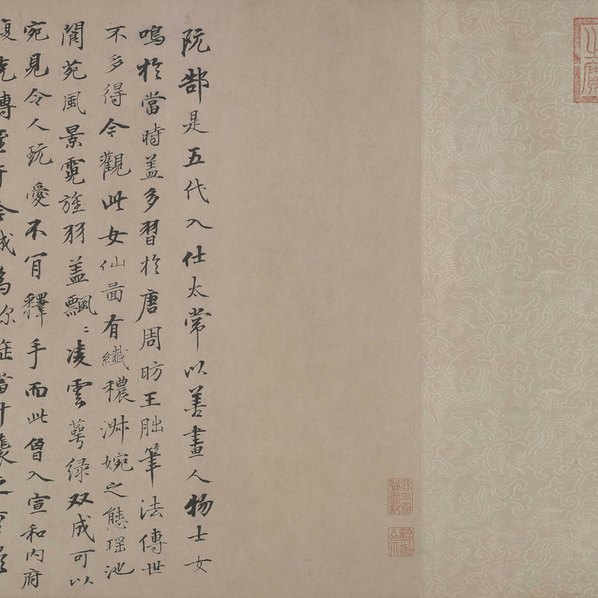 阮郜是五代入仕太常以善畫人物士女
鳴於當時蓋多習於唐周昉王朏筆法傳世
不多得今觀此女仙啚有纖穠淋婉之態瑶池
閬苑風景霓旌羽蓋飄〻凌雲萼綠双成可以
宛見令人玩愛不肎釋手而此曾入宣和內府
傳當什襲之